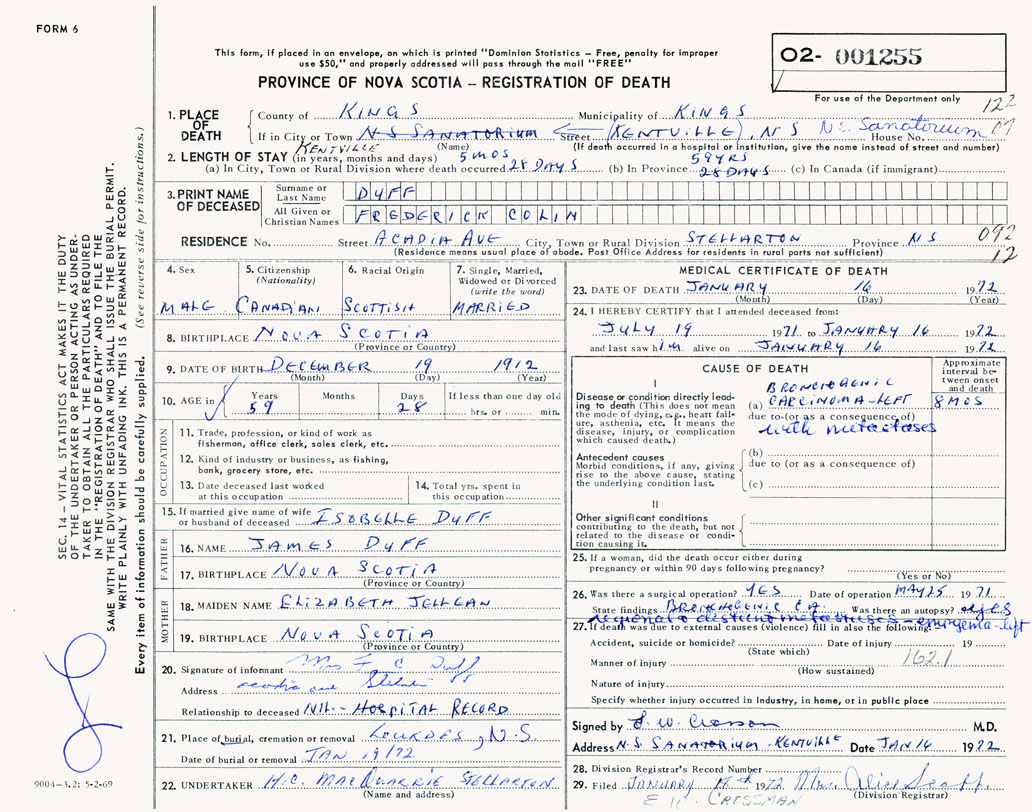 FORM 6
This form, if placed in an envelope, on which is printed "Dominion Statistics – Free, penalty for improper
use $50," and properly addressed will pass through the mail "FREE"
PROVINCE OF NOVA SCOTIA – REGISTRATION OF DEATH
O2- 001255
For use of the Department only
122
1. PLACE OF DEATH
County of KINGS Municipality of KINGS
If in City or Town N S SANATORIUM Street (KENTVILLE), N S NS. Sanatorium House No. 07
KENTVILLE (Name) (If death occurred in a hospital or institution, give the name instead of street and number)
2. LENGTH OF STAY (in years, months and days) 5 MOS 59 YRS
(a) In City, Town or Rural Division where death occurred 28 DAYS (b) In Province 28 DAYS (c) In Canada (if immigrant)
3. PRINT NAME OF DECEASED
Surname or Last Name DUFF
All Given or Christian Names FREDERICK COLIN
RESIDENCE No. Street ACADIA AVE City, Town or Rural Division STELLARTON Province N S 092
(Residence means usual place of abode. Post Office Address for residents in rural parts not sufficient) 12
4. Sex MALE
5. Citizenship (Nationality) CANADIAN
6. Racial Origin SCOTTISH
7. Single, Married, Widowed or Divorced (write the word) MARRIED
8. BIRTHPLACE NOVA SCOTIA
(Province or Country)
9. DATE OF BIRTH DECEMBER 19 1912
(Month) (Day) (Year)
10. AGE in Years 59 Months Days 28 If less than one day old hrs. or min.
OCCUPATION
11. Trade, profession, or kind of work as
fisherman, office clerk, sales clerk, etc.
12. Kind of industry or business, as fishing,
bank, grocery store, etc.
13. Date deceased last worked at this occupation
14. Total yrs. spent in this occupation
15. If married give name of wife or husband of deceased ISOBELLE DUFF
FATHER
16. NAME JAMES DUFF
17. BIRTHPLACE NOVA SCOTIA
(Province or Country)
MOTHER
18. MAIDEN NAME ELIZABETH
19. BIRTHPLACE NOVA SCOTIA
(Province or Country)
20. Signature of informant Mrs F C Duff
Address acadia ave
Relationship to deceased NIL-- HOSPITAL RECORD
21. Place of burial, cremation or removal LOURDES, N.S.
Date of burial or removal JAN 19/72
22. UNDERTAKER H.C. MACQUARRIE STELLARTON
(Name and address)
MEDICAL CERTIFICATE OF DEATH
23. DATE OF DEATH JANUARY 16 1972
(Month) (Day) (Year)
24. I HEREBY CERTIFY that I attended deceased from:
JULY 19 1971 to JANUARY 16 1972
and last saw him alive on JANUARY 16 1972
CAUSE OF DEATH
Approximate interval between onset and death
I
Disease or condition directly leading to death (This does not
mean the mode of dying, e.g., heart failure, asthenia, etc. It means the
disease, injury, or complication which caused death.)
BRONCHOGENIC
(a) CARCINOMA-LEFT 8 MOS
due to (or as a consequence of)
with metastases
Antecedent causes
Morbid conditions, if any, giving
rise to the above cause, stating
the underlying condition last.
(b)
due to (or as a consequence of)
(c)
II
Other significant conditions
contributing to the death, but not
related to the disease or condition causing it.
25. If a woman, did the death occur either during
pregnancy or within 90 days following pregnancy?
(Yes or No)
26. Was there a surgical operation? YES Date of operation MAY 25 1971
State findings BRONCHOGENIC CA. Was there an autopsy? yes
regional & distant metastases - empyema-left
27. If death was due to external causes (violence) fill in also the following:
Accident, suicide or homicide? Date of injury 19
(State which) 162.1
Manner of injury
(How sustained)
Nature of injury
Specify whether injury occurred in Industry, in home, or in public place
Signed by M.D.
Address N.S. SANATORIUM - KENTVILLE Date JAN 16 1972
28. Division Registrar's Record Number
29. Filed JANUARY 1972 Mrs. Alice
(Division Registrar)
E. W. CROSSMAN
SEC. 14 – VITAL STATISTICS ACT MAKES IT THE DUTY
OF THE UNDERTAKER OR PERSON ACTING AS UNDERTAKER
TO OBTAIN ALL THE PARTICULARS REQUIRED
IN THE "REGISTRATION OF DEATH" AND TO FILE THE
SAME WITH THE DIVISION REGISTRAR WHO SHALL ISSUE THE BURIAL PERMIT.
WRITE PLAINLY WITH UNFADING INK. THIS IS A PERMANENT RECORD.
Every item of information should be carefully supplied. (See reverse side for instructions.)
9004-3.2: 5-2-69